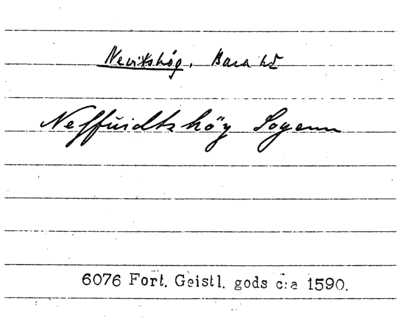 Nevitshög, Bara hd
Neffuidtzhöy Sogenn
6076 Fort. Geistl. gods c:a 1590.